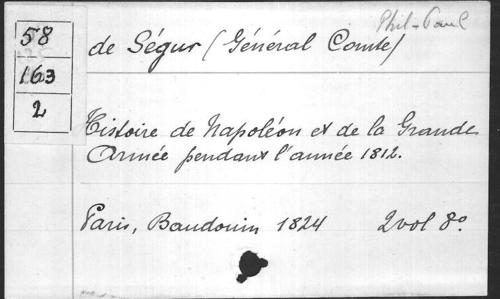 Phil-Paul
58
de Ségur (Général Comte)
163
2
Histoire de Napoléon et de la Grande
Armée pendant l'année 1812.
Paris, Baudouin 1824 2 vol 8º